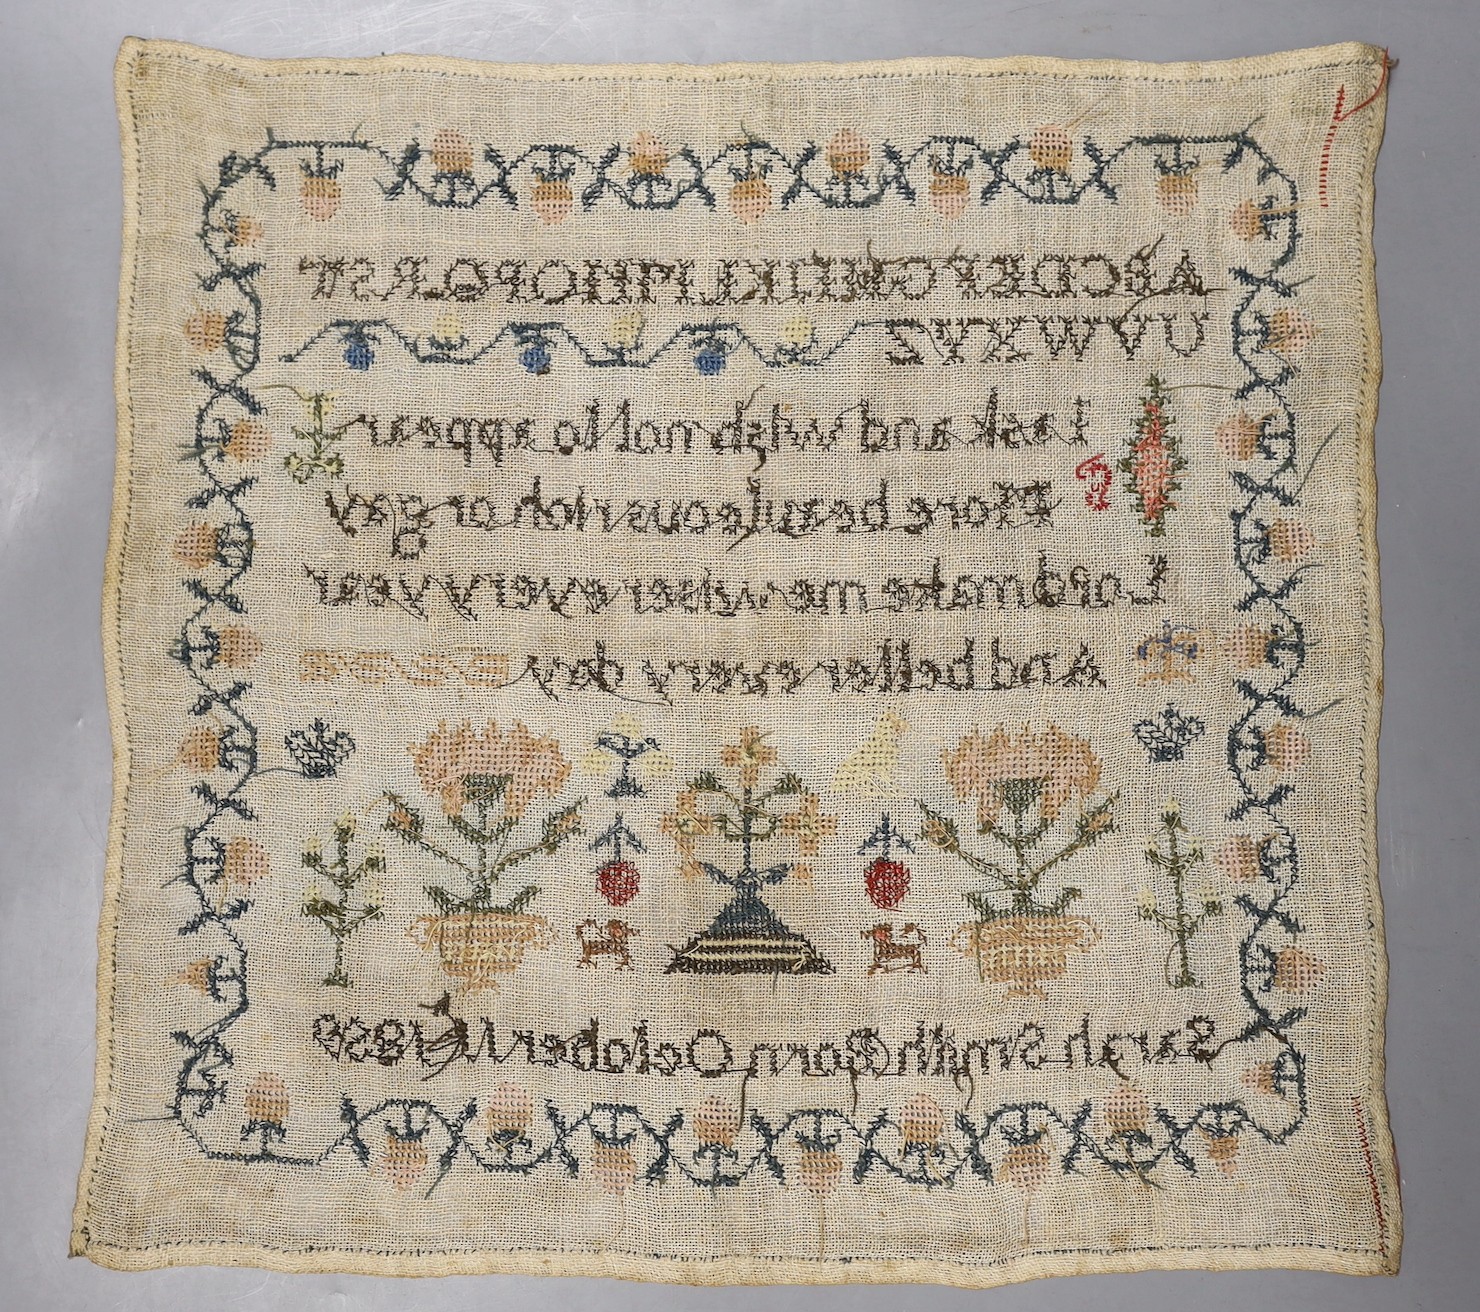 ABCDEFGHIJKLMNOPQRST
UVWXYZ
I ask and wish not to appear
More beauteous rich or gay
Lord make me wiser every year
And better every day
Sarah Smith Born October